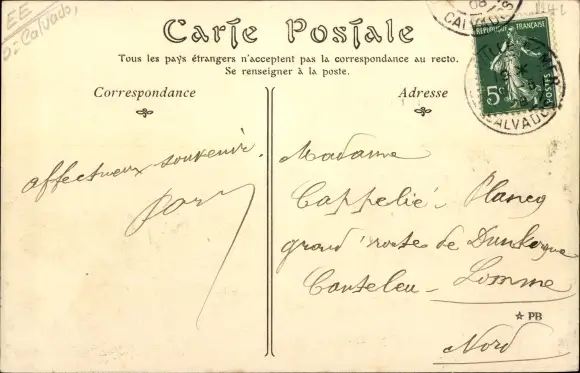 EE
D: Calvados
1141
08
CALVADOS
RÉPUBLIQUE FRANÇAISE
5c
POSTES
MER
CALVADOS
Carte Postale
Tous les pays étrangers n'acceptent pas la correspondance au recto.
Se renseigner à la poste.
Correspondance
Adresse
affectueux souvenir.
Madame
Cappelié - Plancq
grand'route de Dunkerque
Canteleu - Lomme
☆ PB
Nord